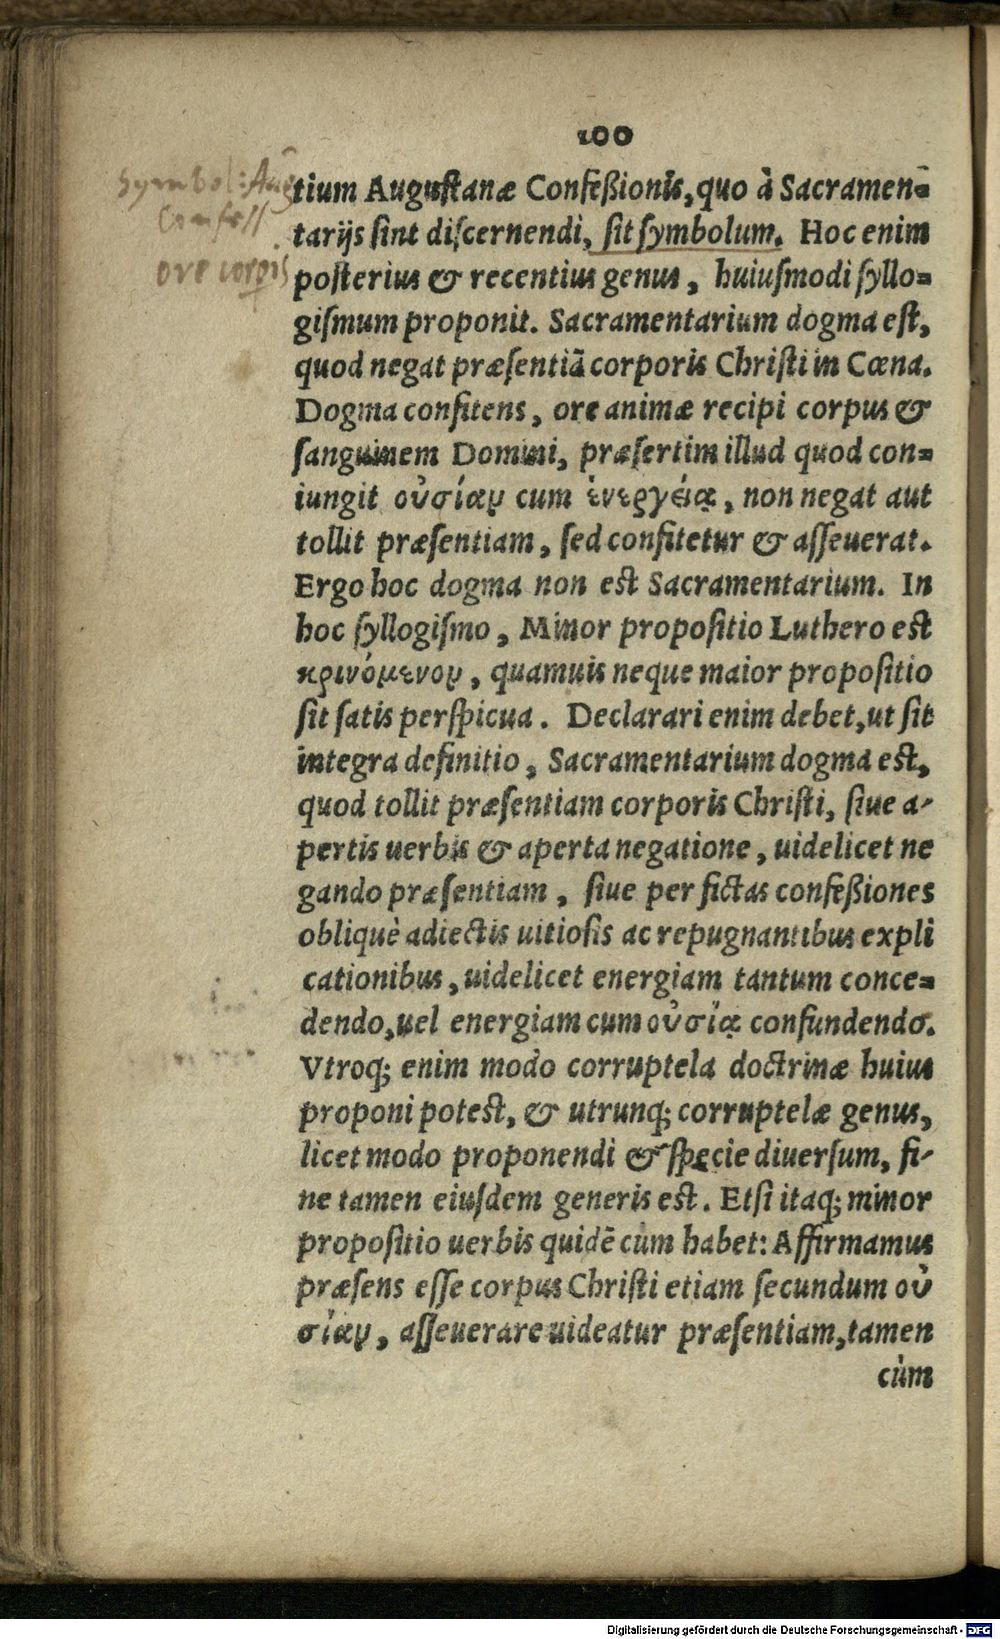 100
Symbol: Aug
Confess
ore corpis
tium Augustanæ Confeßionis, quo à Sacramen=
tarijs sint discernendi, sit symbolum. Hoc enim
posterius & recentius genus, huiusmodi syllo=
gismum proponit. Sacramentarium dogma est,
quod negat præsentiã corporis Christi in Cœna.
Dogma confitens, ore animæ recipi corpus &
sanguinem Domini, præsertim illud quod con=
iungit οὐσίαν cum ἐνεργείᾳ, non negat aut
tollit præsentiam, sed confitetur & asseuerat.
Ergo hoc dogma non est Sacramentarium. In
hoc syllogismo, Minor propositio Luthero est
κρινόμενον, quamuis neque maior propositio
sit satis perspicua. Declarari enim debet, ut sit
integra definitio, Sacramentarium dogma est,
quod tollit præsentiam corporis Christi, siue a-
pertis uerbis & aperta negatione, uidelicet ne
gando præsentiam, siue per fictas confeßiones
obliquè adiectis uitiosis ac repugnantibus expli
cationibus, uidelicet energiam tantum conce=
dendo, uel energiam cum οὐσίᾳ confundendo.
Vtroq; enim modo corruptela doctrinæ huius
proponi potest, & utrunq; corruptelæ genus,
licet modo proponendi & specie diuersum, fi-
ne tamen eiusdem generis est. Etsi itaq; minor
propositio uerbis quidẽ cùm habet: Affirmamus
præsens esse corpus Christi etiam secundum οὐ
σίαν, asseuerare uideatur præsentiam, tamen
cùm
Digitalisierung gefördert durch die Deutsche Forschungsgemeinschaft - DFG